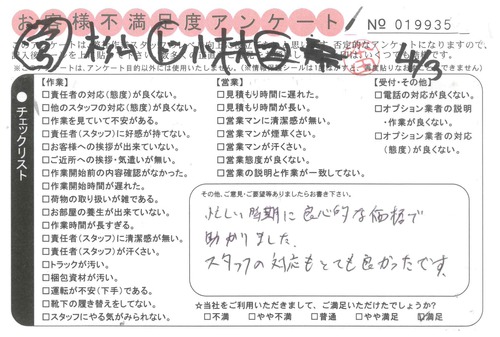 お客様不満足度アンケート
No 019935
4/3
チェックリスト
【作業】
□責任者の対応(態度)が良くない。
□他のスタッフの対応(態度)が良くない。
□作業を見ていて不安がある。
□責任者(スタッフ)に好感が持てない。
□お客様への挨拶が出来ていない。
□ご近所への挨拶・気遣いが無い。
□作業開始前の内容確認がなかった。
□作業開始時間が遅れた。
□荷物の取り扱いが雑である。
□お部屋の養生が出来ていない。
□作業時間が長すぎる。
□責任者(スタッフ)に清潔感が無い。
□責任者(スタッフ)が汗くさい。
□トラックが汚い。
□梱包資材が汚い。
□運転が不安(下手)である。
□靴下の履き替えをしてない。
□スタッフにやる気がみられない。
【営業】
□見積もり時間に遅れた。
□見積もり時間が長い。
□営業マンに清潔感が無い。
□営業マンが煙草くさい。
□営業マンが汗くさい。
□営業態度が良くない。
□営業の説明と作業が一致してない。
【受付・その他】
□電話の対応が良くない。
□オプション業者の説明
・作業が良くない。
□オプション業者の対応
(態度)が良くない。
その他、ご意見・ご要望等ありましたらお書き下さい。
忙しい時期に良心的な価格で
助かりました。
スタッフの対応もとても良かったです。
☆当社をご利用いただきまして、ご満足いただけたでしょうか?
□不満 □やや不満 □普通 □やや満足 ☑満足